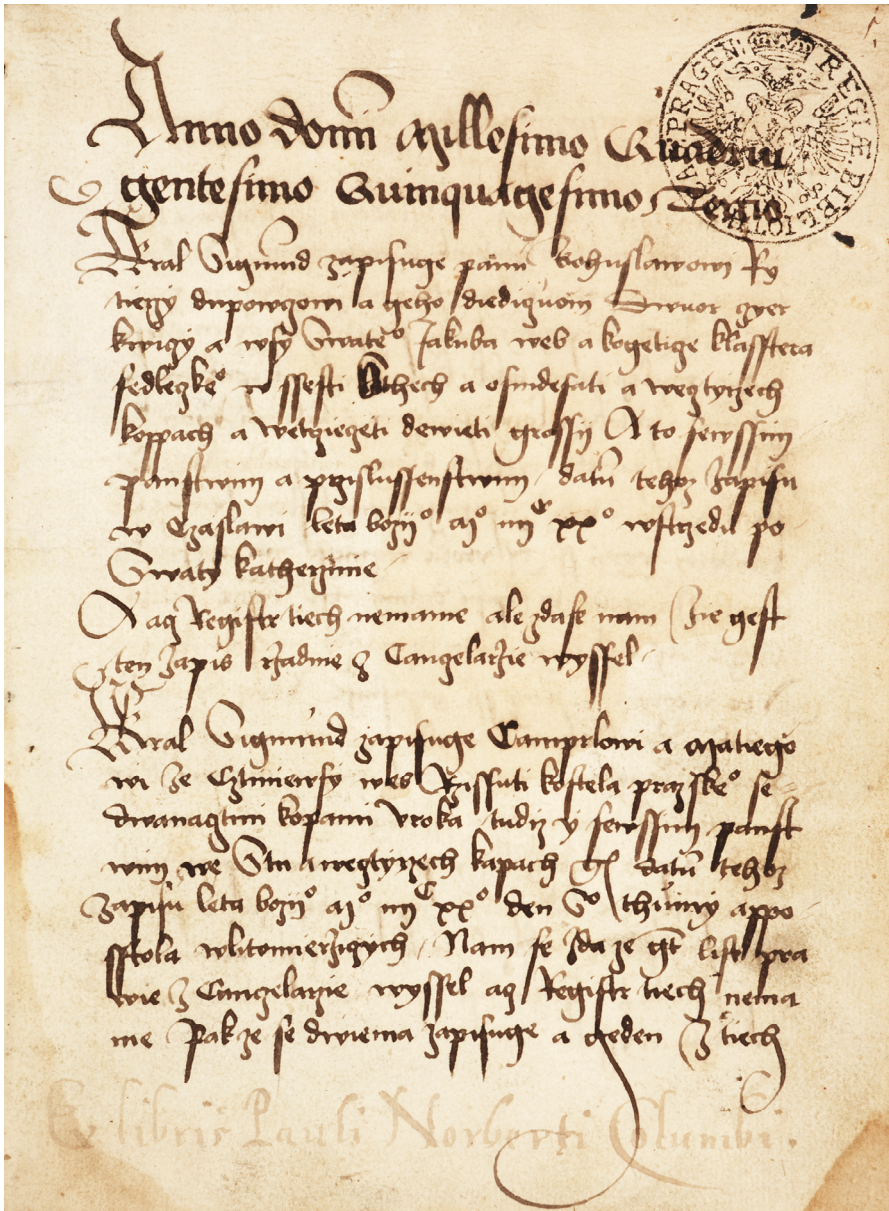 Anno domini Millesimo Quadrin
gentesimo Quinquagesimo Tercio
Kral Sigmund zapisuge panu Bohuslawowi Ry
a geho diediczuom Dwuor
a wsy Swateo Jakuba wes a kogetige klasstera
sedleczkeo w ssesti Sthech a osmdesati a wecztyrzech
koppach a wetrziezeti dewieti grossij A to sewssim
panstwim a przislussenstwim datu tehoz zapisu
w Czaslawi leta bozijo Mo iiijC xxo wstrzedu po
Swaty katherzinie
A acz Registr tiech nemame ale zdase nam zie gest
ten zapis rzadnie z Canczelarzie wyssel
Kral Sigmund zapisuge Camprlowi a Matiego
wi ze wes kostela prazskeo se=
dwanagtmi kopami vroka tudiz y sewssim panst
wim we Stu a wecztyrzech kapach datu tehoz
Zapisu leta bozijo Mo iiijC xxo den So thuomy appo
sstola wlitomierziczych Nam se zda ze gt list pra
wie z Canczelarzie wyssel acz Registr tiech nema
me Pak ze se dwiema zapisuge a geden z tiech
Ex libris Pauli Norberti Columbi.